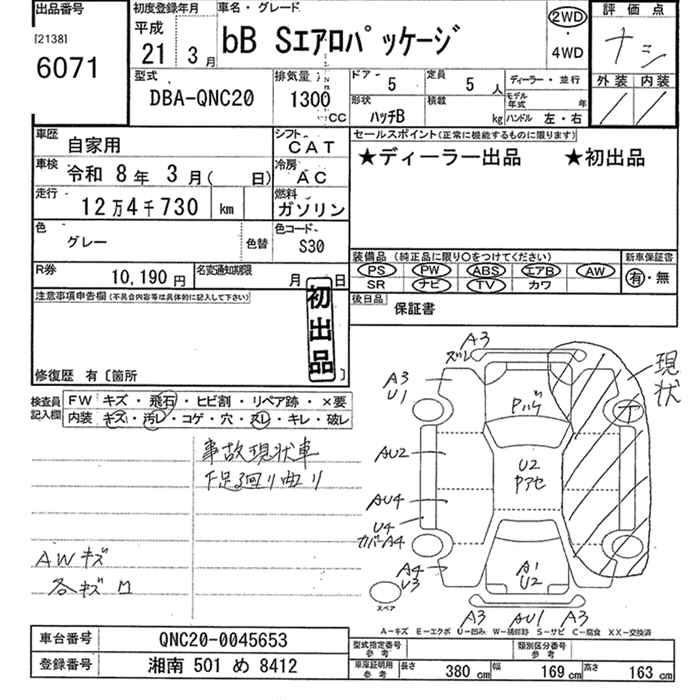 出品番号
[2138]
6071
初度登録年月
平成
21 年 3 月
車名・グレード
bB Sエアロパッケージ
2WD
・
4WD
評価点
ナシ
外装 内装
型式
DBA-QNC20
排気量
1300 CC
ドア 5
定員 5 人
形状 ハッチB
積載 kg
ディーラー・並行
モデル年式 年
ハンドル 左・右
車歴 自家用
シフト CAT
車検 令和 8年 3月( 日)
冷房 AC
走行 12万4千730 km
燃料 ガソリン
色 グレー 色替
色コード S30
R券 10,190 円
名変通知期限 月 日
セールスポイント(正常に機能するものに限ります)
★ディーラー出品 ★初出品
装備品(純正品に限り○をつけてください)
PS PW ABS エアB AW
SR ナビ TV カワ
新車保証書
有・無
後日品 保証書
注意事項申告欄(不具合内容等は具体的に記入して下さい)
初出品
修復歴 有〔箇所 〕
検査員記入欄
FW キズ・飛石・ヒビ割・リペア跡・×要
内装 キズ・汚レ・コゲ・穴・スレ・キレ・破レ
事故現状車
下足廻り曲り
AWキズ
各キズ凹
A3
ズレ
A3
U1
現状
AU2
U2
Pアセ
AU4
U4
カバーA4
A4
U3
A1
U2
スペア
A3 AU1 A3
A－キズ E－エクボ U－凹み W－補修跡 S－サビ C－腐食 XX－交換済
車台番号 QNC20-0045653
登録番号 湘南 501 め 8412
型式指定番号 参考
類別区分番号 参考
車庫証明用 参考 長さ 380 cm 幅 169 cm 高さ 163 cm